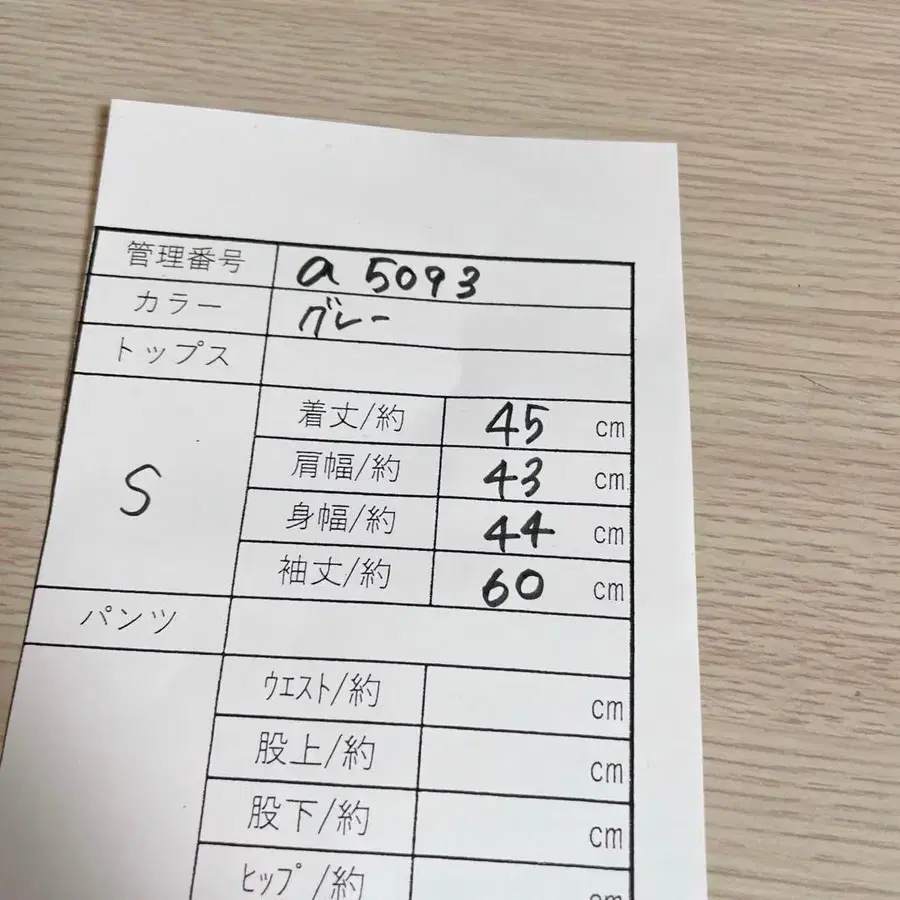 管理番号 a 5093
カラー グレー
トップス
S
着丈/約 45 cm
肩幅/約 43 cm
身幅/約 44 cm
袖丈/約 60 cm
パンツ
ウエスト/約 cm
股上/約 cm
股下/約 cm
ヒップ/約 cm